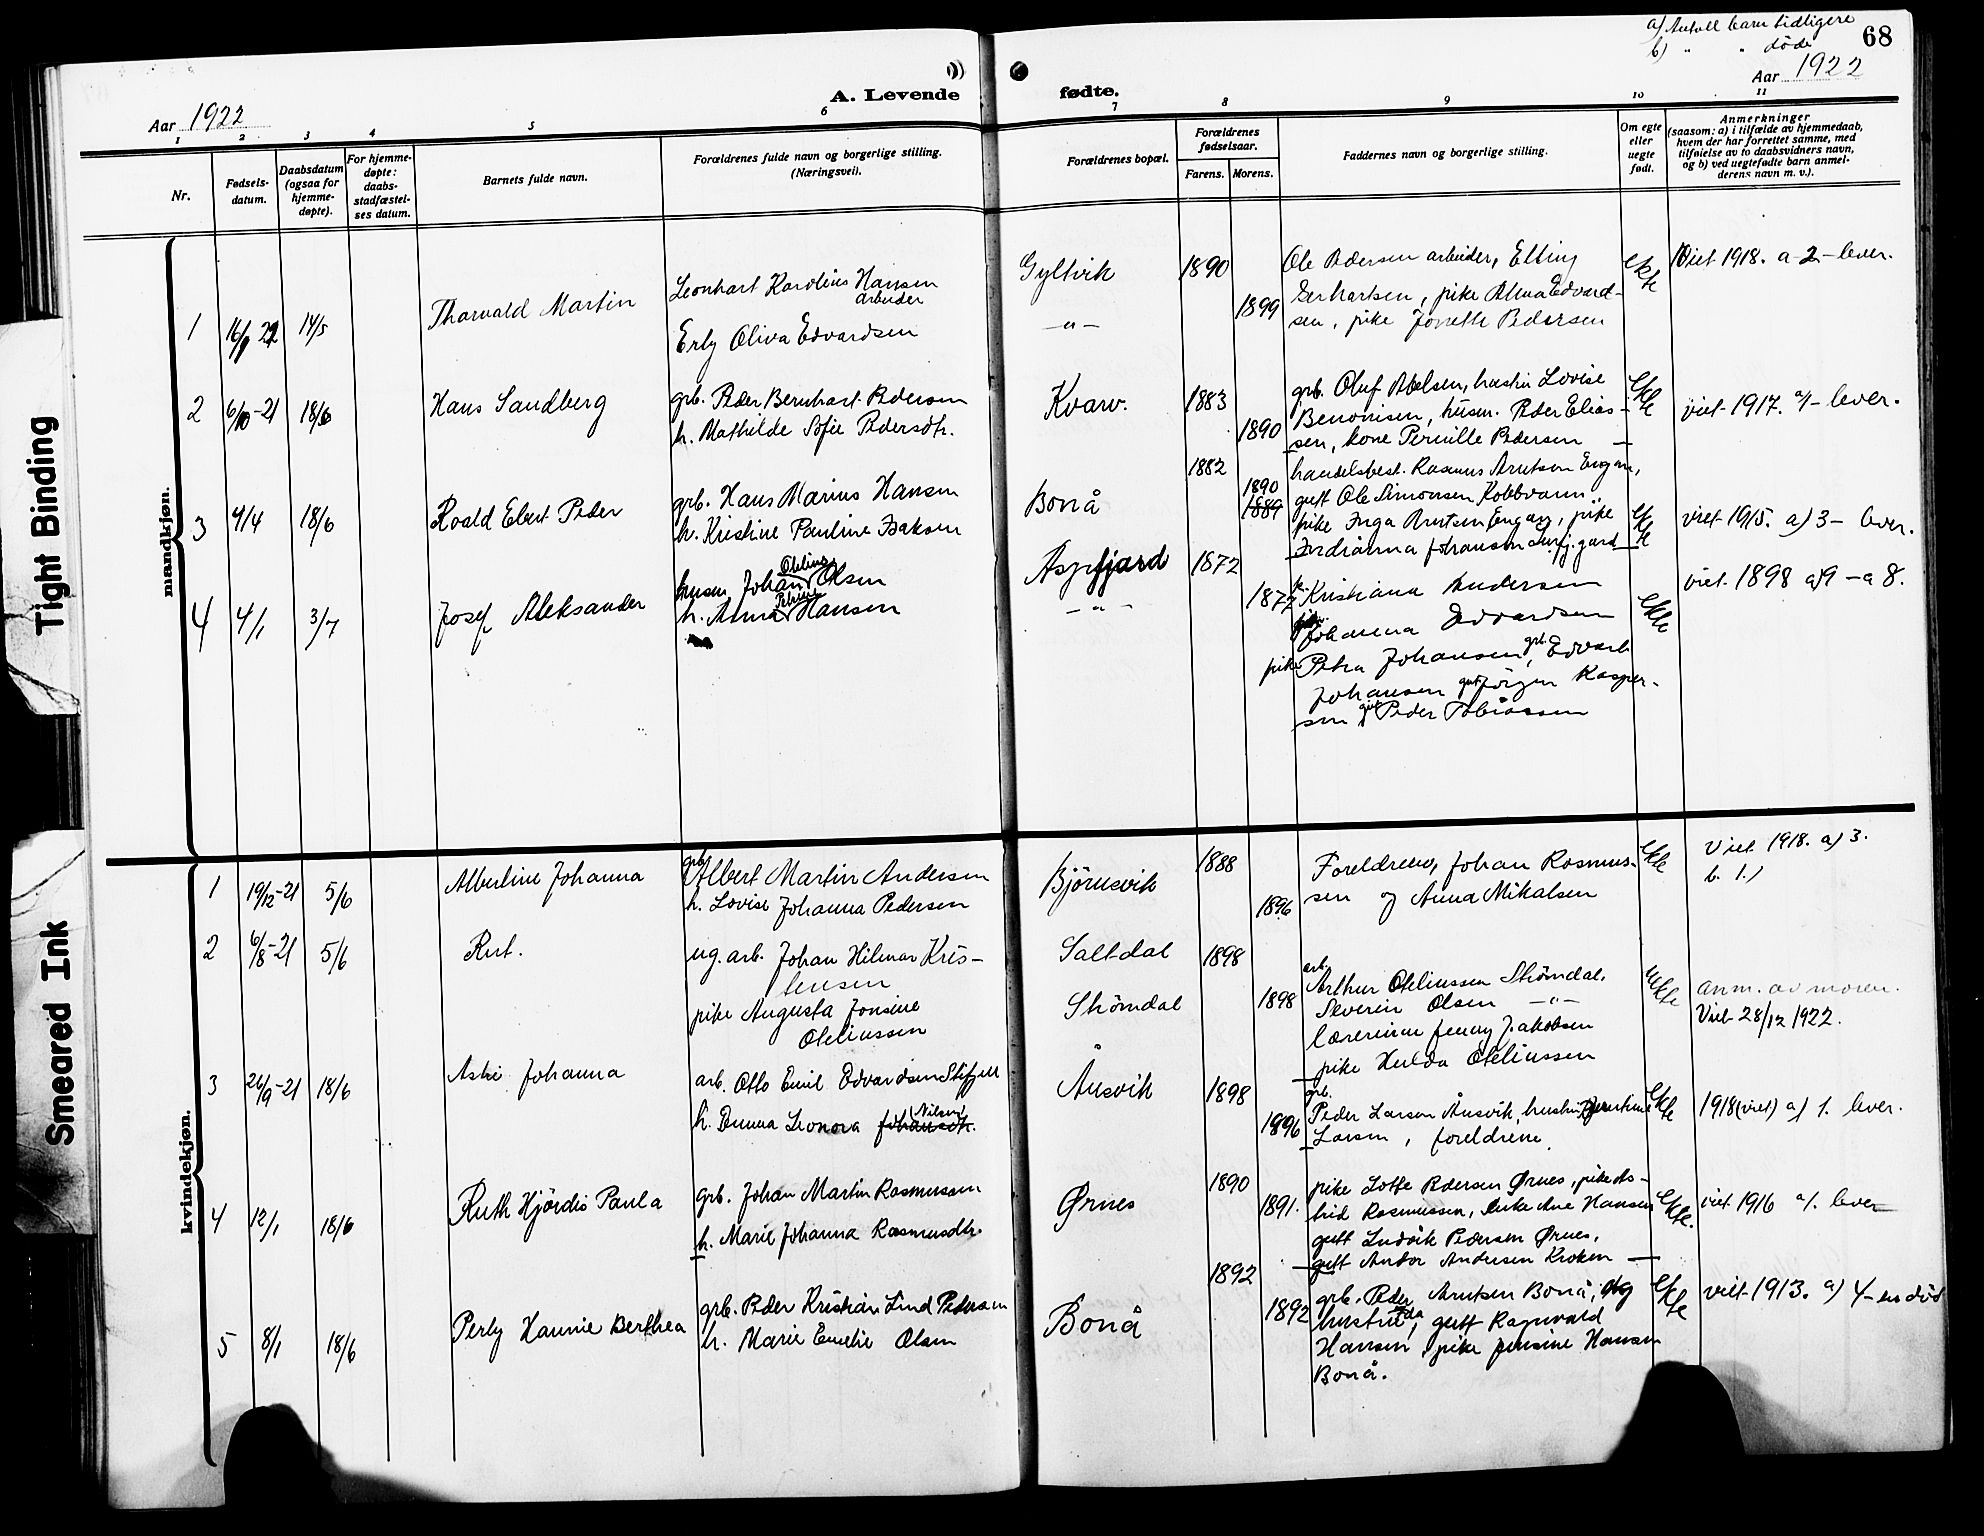 a) Antall barn tidligere
b) " " døde
68
Aar 1922
A. Levende fødte.
Aar 1922
1 2 3 4 5 6 7 8 9 10 11
Nr.
Fødsels-
datum.
Daabsdatum
(ogsaa for
hjemme-
døpte).
For hjemme-
døpte:
daabs-
stadfæstel-
ses datum.
Barnets fulde navn.
Forældrenes fulde navn og borgerlige stilling.
(Næringsvei).
Forældrenes bopæl.
Forældrenes
fødselsaar.
Farens. Morens.
Faddernes navn og borgerlige stilling.
Om egte
eller
uegte
født.
Anmerkninger
(saasom: a) i tilfælde av hjemmedaab,
hvem der har forrettet samme, med
tilføielse av to daabsvidners navn,
og b) ved uegtefødte barn anmel-
derens navn m. v.).
mandkjøn.
1 14/5
Thorvald Martin
Leonhart Karolius Hansen
arbeider
Erly Oliva Edvardsen
Gyltvik
— " —
1890
1899
Ole Pedersen arbeider, Elling
Gerhartsen, pike Alma Edvard-
sen, pike Jonette Pedersen
ekte
Viet 1918. a - 2 - lever.
2 6/10-21 18/6
Hans Sandberg
grb. Peder Bernhart Pedersen
h. Mathilde Sofie Pedersdtr.
Kvarv.
1883
1890
grb. Oluf Abelsen, hustru Lovise
Benonisen, husm. Peder Elias-
sen, kone Pernille Pedersen —
ekte
viet 1917. a/1 - lever.
3 4/4 18/6
Roald Ebert Peder
grb. Hans Marius Hansen
h. Kristine Pauline Isaksen
Bonå
1882
1890
1889
handelsbest. Rasmus Arntsen Engan,
gutt Ole Simonsen Kobbvann,
pike Inga Arntsen Engan, pike
Indianna Johansen
ekte
viet 1915. a) 3 - lever.
4 4/1 3/7
Josef Aleksander
Oteling
husm Johan Olsen
Petrine
h. Anna Hansen
Aspfjord
— " —
1872
1877
Kristiana Andersen
Johanna Edvardsen
pike Petra Johansen, grb. Edvard
Johansen gutt Jörgen Kasper-
sen gutt Peder Tobiassen
ekte
viet 1898 a) 9 - a 8.
kvindekjøn.
1 19/12-21 5/6
Albertine Johanna
grb.
Albert Martin Andersen
h. Lovise Johanna Pedersen
Björnsvik
1888
1896
Foreldrene, Johan Rasmus-
sen og Anna Mikalsen
ekte
Viet 1918. a) 3.
b. 1.)
2 6/8-21 5/6
Rut.
ug. arb. Johan Hilmar Kris-
tensen
pike Augusta Jonsine
Oteliussen
Saltdal
Strömdal
1898
1898
arb.
Arthur Oteliussen Strömdal,
Severin Olsen — " —
lærerinne Jenny Jakobsen
pike Hulda Oteliussen
uekte
anm. av moren.
Viet 28/12 1922.
3 26/9-21 18/6
Astri Johanna
arb. Otto Emil Edvardsen Stifjell
(Nilsen)
h. Emma Leonora Johansdtr.
Ånsvik
1898
1896
grb.
Peder Larsen Ånsvik, hustru Berntine
Larsen, foreldrene.
ekte
1918 (viet) a) 1. lever.
4 12/1 18/6
Ruth Hjördis Paula
grb. Johan Martin Rasmussen
h. Marie Johanna Rasmusdtr.
Ørnes
1890
1891.
pike Lotte Pedersen Ørnes, pike As-
trid Rasmussen, enke Ane Hansen
gutt Ludvik Pedersen Ørnes,
gutt Andor Andersen Kroken —
ekte.
viet 1916 a/1. lever
5 8/1 18/6
Perly Hannie Berthea
grb. Peder Kristian Lind Pedersen
h. Marie Emelie Olsen
Bonå
1892
1892
grb. Peder Arntsen Bonå, og
hustru Ida, gutt Ragnvald
Hansen, pike Jensine Hansen
Bonå.
ekte
viet 1913. a) 4 - en död
Tight Binding
Smeared Ink